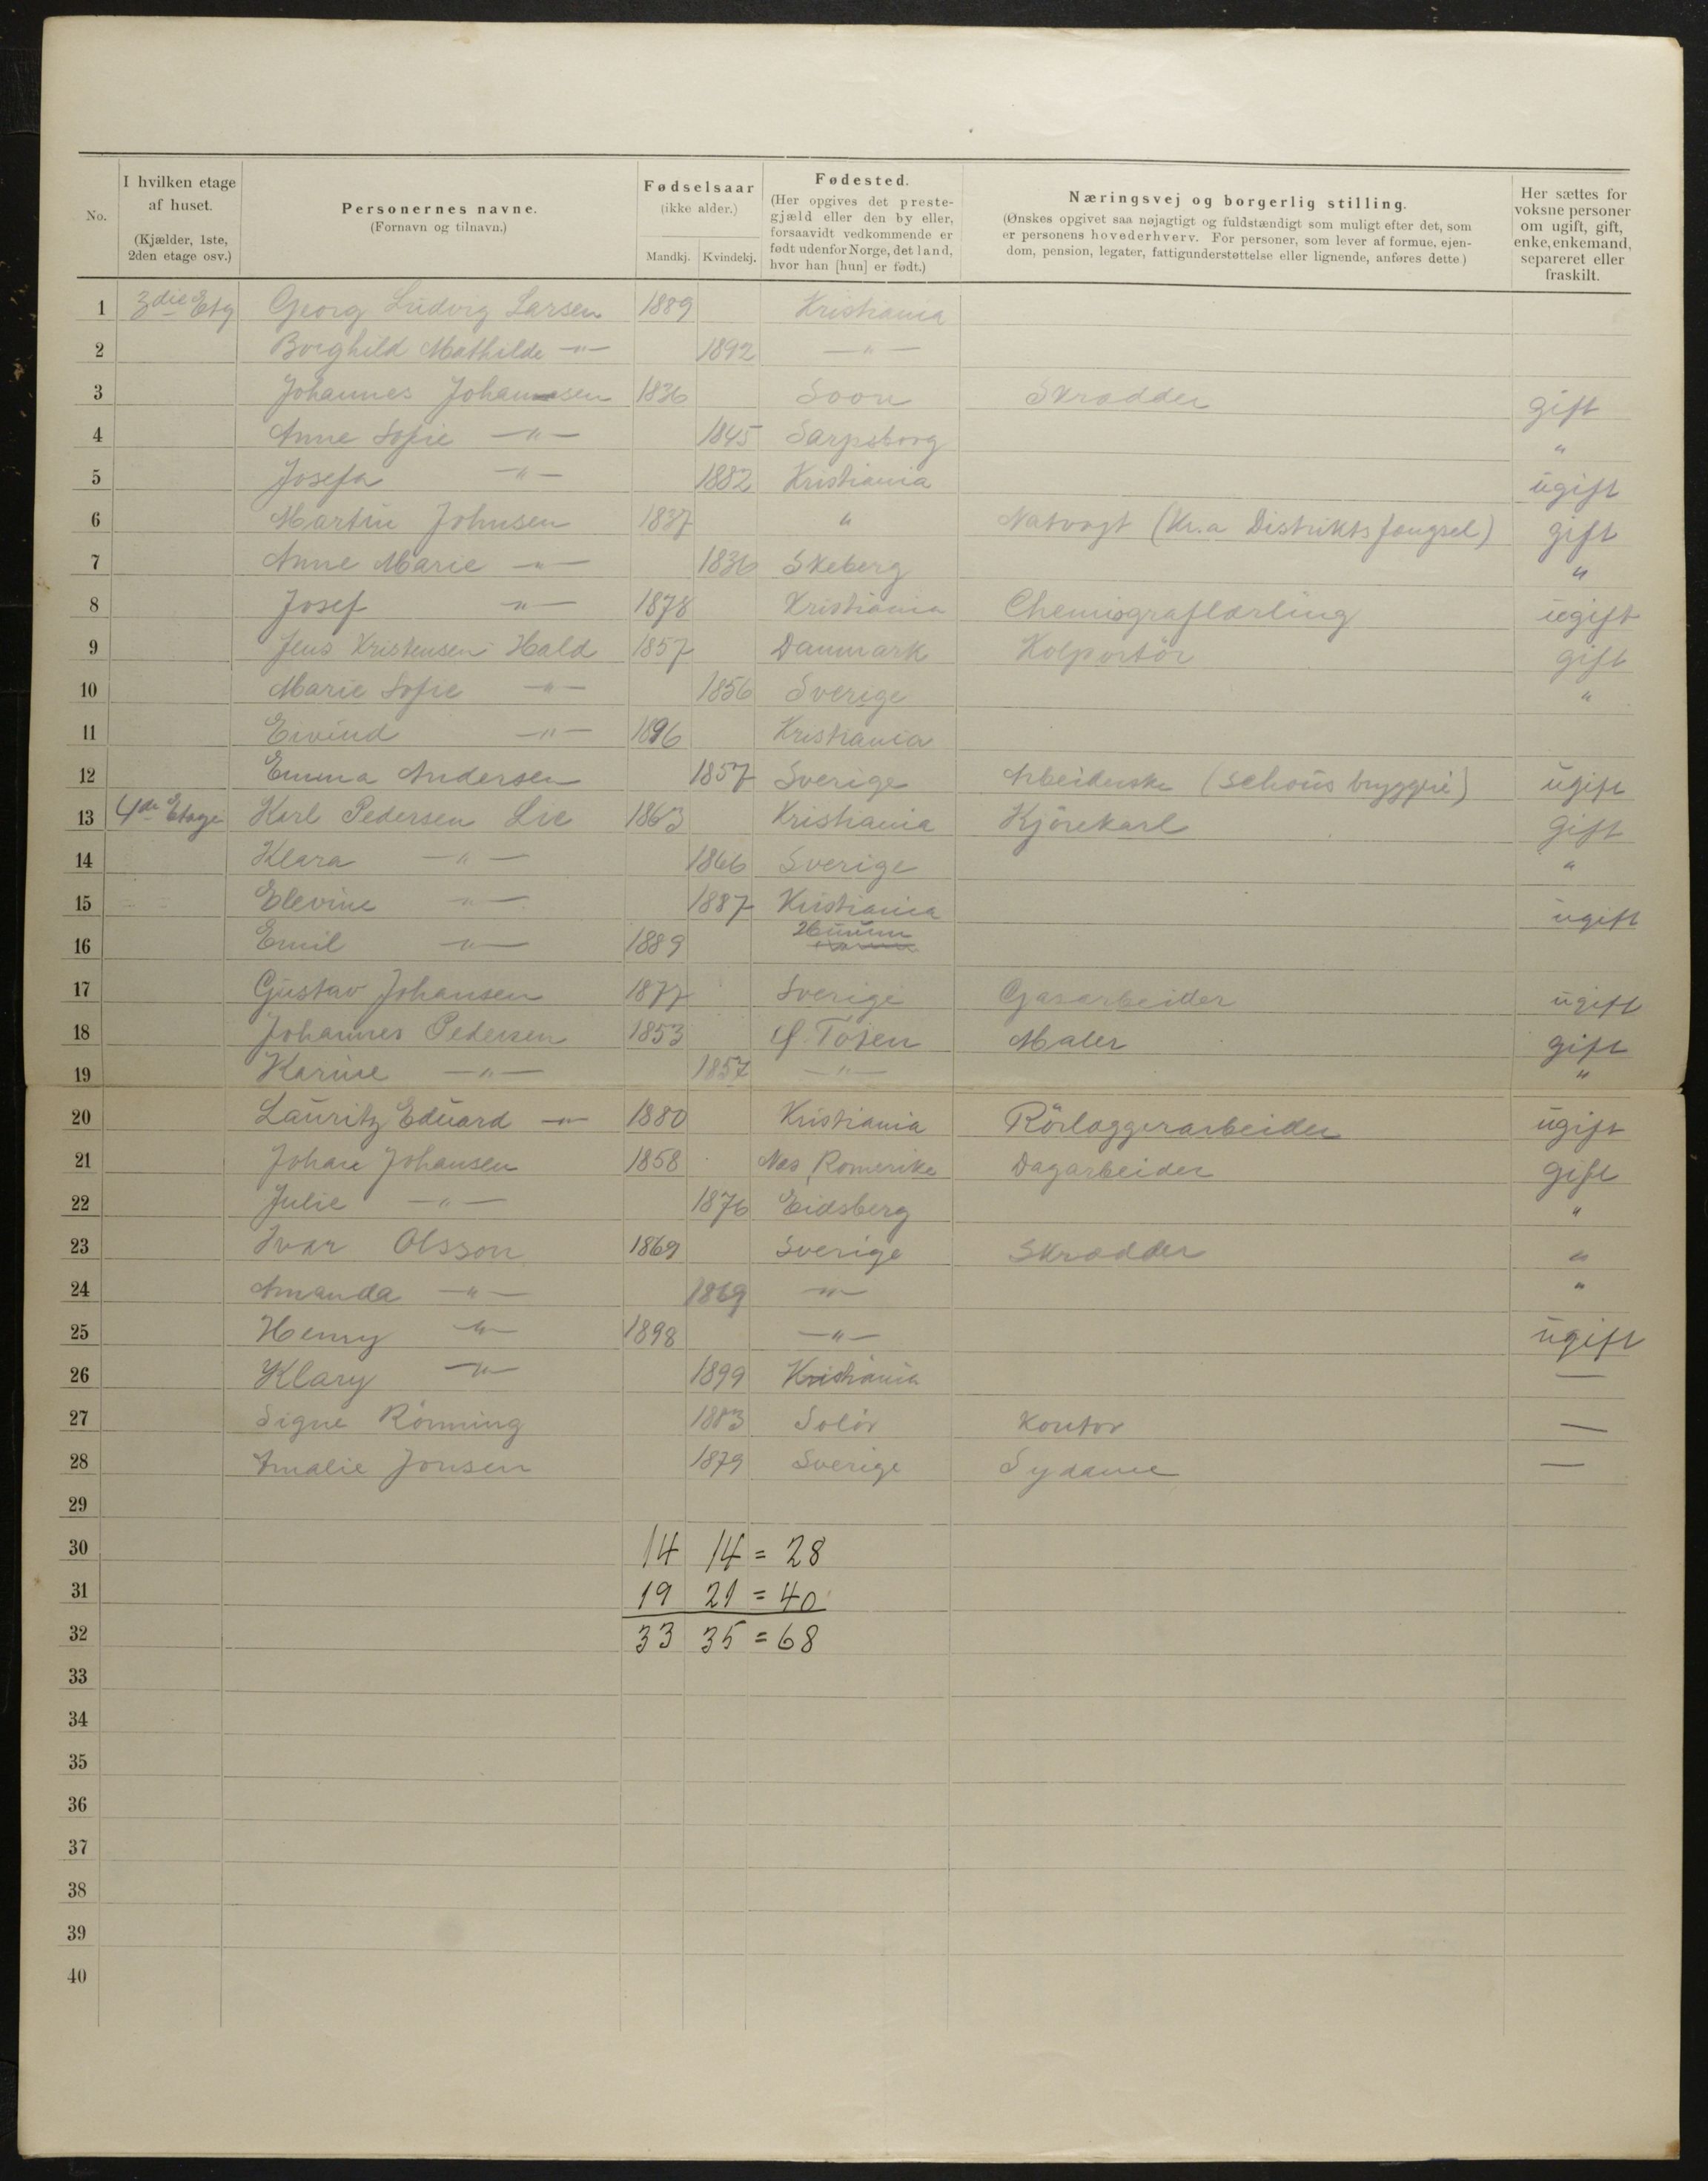 No.
I hvilken etage af huset.
(Kjælder, 1ste, 2den etage osv.)
Personernes navne.
(Fornavn og tilnavn.)
Fødselsaar
(ikke alder.)
Mandkj. Kvindekj.
Fødested.
(Her opgives det preste-
gjæld eller den by eller,
forsaavidt vedkommende er
født udenfor Norge, det land,
hvor han [hun] er født.)
Næringsvej og borgerlig stilling.
(Ønskes opgivet saa nøjagtigt og fuldstændigt som muligt efter det, som
er personens hovederhverv. For personer, som lever af formue, ejen-
dom, pension, legater, fattigunderstøttelse eller lignende, anføres dette)
Her sættes for
voksne personer
om ugift, gift,
enke, enkemand,
separeret eller
fraskilt.
1 3die Etg Georg Ludvig Larsen 1889 Kristiania
2 Borghild Mathilde —"— 1892 —"—
3 Johannes Johannesen 1836 Soon Skrædder gift
4 Anne Sofie —"— 1845 Sarpsborg "
5 Josefa —"— 1882 Kristiania ugift
6 Martin Johnsen 1837 " Natvagt (Kr.a Distriktsfængsel) gift
7 Anne Marie —"— 1836 Skeberg "
8 Josef —"— 1878 Kristiania Chemigraflærling ugift
9 Jens Kristensen Hald 1857 Danmark Kolportör gift
10 Marie Sofie —"— 1856 Sverige "
11 Eivind —"— 1896 Kristiania
12 Emma Andersen 1857 Sverige Arbeiderske (Schous bryggeri) ugift
13 4de Etage Karl Pedersen Lie 1863 Kristiania Kjörekarl gift
14 Klara —"— 1866 Sverige "
15 Elevine —"— 1887 Kristiania ugift
16 Emil —"— 1889
17 Gustav Johansen 1877 Sverige Gasarbeider ugift
18 Johannes Pedersen 1853 Ø. Toten Maler gift
19 Karine —"— 1857 —"— "
20 Lauritz Eduard —"— 1880 Kristiania Rörlæggerarbeider ugift
21 Johan Johansen 1858 Næs, Romerike Dagarbeider gift
22 Julie —"— 1876 Eidsberg "
23 Ivar Olsson 1869 Sverige Skrædder "
24 Amanda —"— 1869 —"— "
25 Henry —"— 1898 —"— ugift
26 Klary —"— 1899 Kristiania —
27 Signe Rönning 1883 Solör Kontor —
28 Amalie Jonsen 1879 Sverige Sydame —
29
30 14 14 = 28
31 19 21 = 40
32 33 35 = 68
33
34
35
36
37
38
39
40